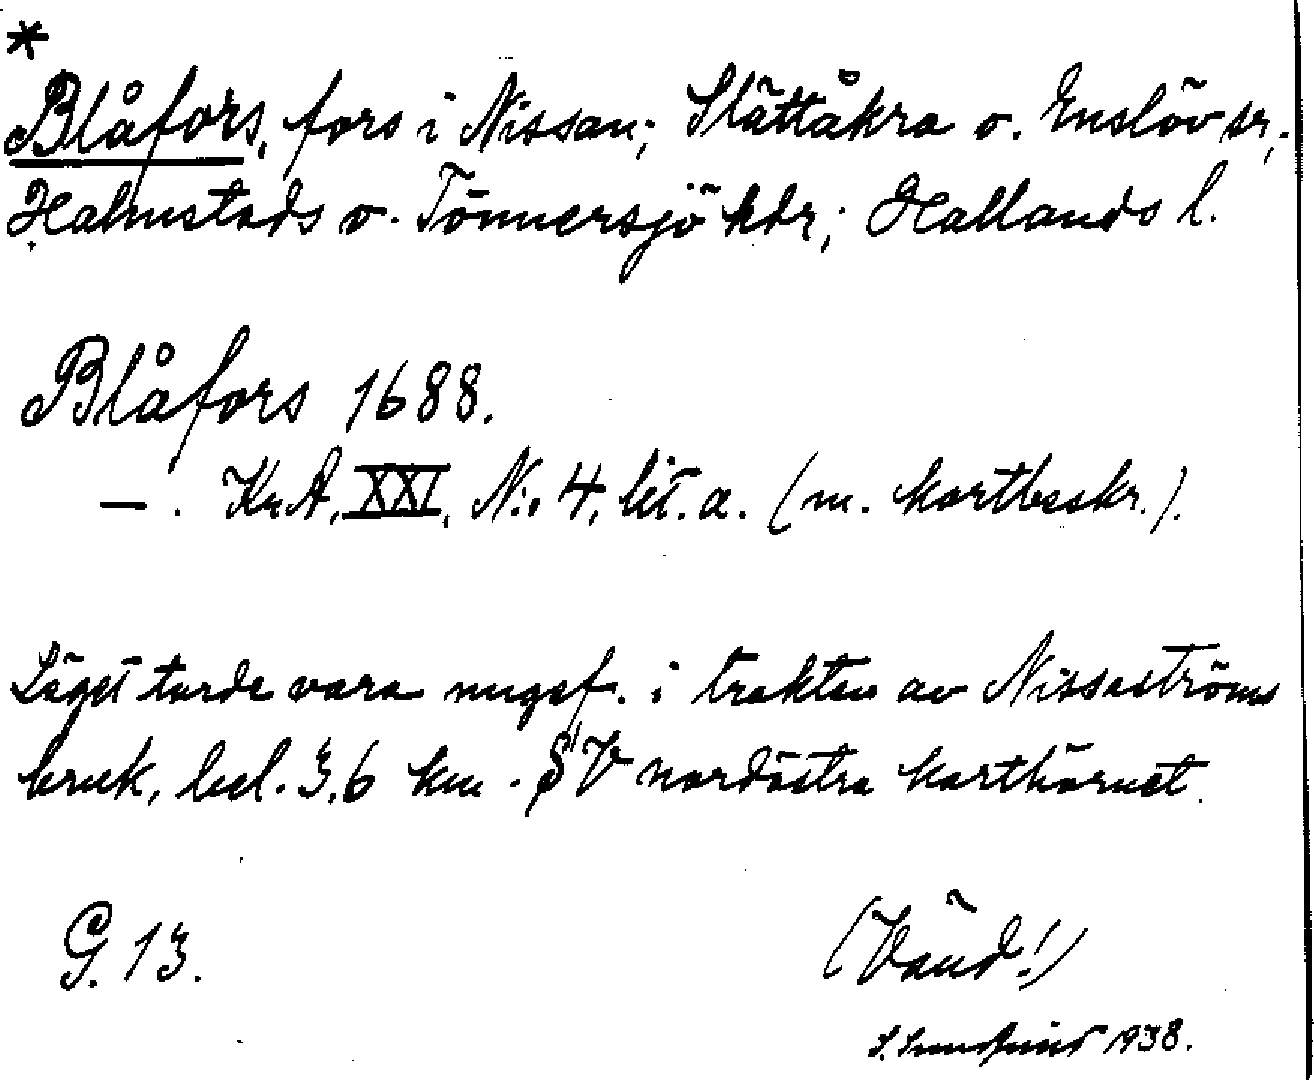 *
Blåfors, fors i Nissan; Slättåkra o. Enslöv sr,
Halmstads o. Tönnersjö hdr; Hallands l.
Blåfors 1688.
— . Kr.A. XXI, N:o 4, lit. a. (m. kartbeskr.).
Läget torde vara ungef. i trakten av Nissaströms
bruk, bel. 3,6 km. SV nordöstra karthörnet.
G. 13.
(Vänd!)
1938.